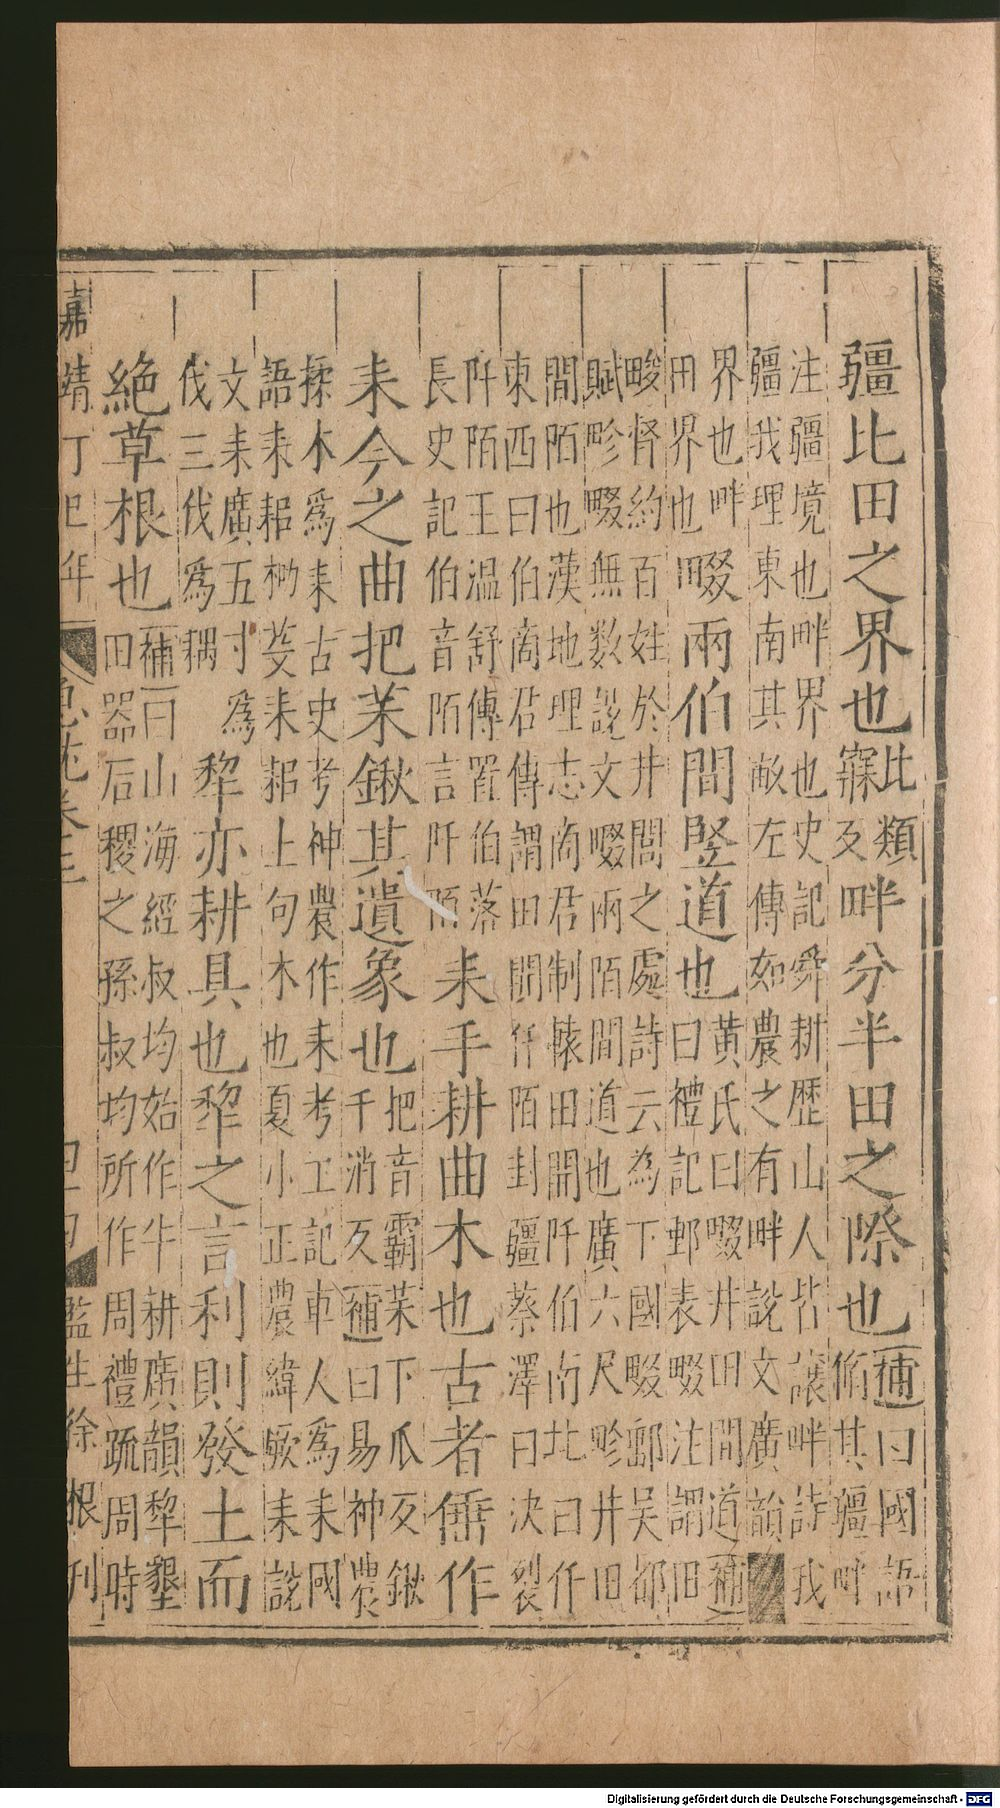 疆比田之界也比類寐反畔分半田之際也補曰國語脩其疆畔
注疆境也畔界也史記舜耕歷山人皆讓畔詩我
疆我理東南其畝左傳如農之有畔說文廣韻
界也畔田界也畷兩伯間竪道也黃氏曰畷井田間道補曰禮記郵表畷注謂田
畯督約百姓於井間之處詩云為下國畷郵吳都
賦畛畷無數說文畷兩陌間道也廣六尺畛井田
間陌也漢地理志商君制轅田開阡伯南北曰仟
東西曰伯商君傳謂田開仟陌封疆蔡澤曰決裂
阡陌王溫舒傳置伯落長史記伯音陌言阡陌耒手耕曲木也古者倕作
耒今之曲把茉鍬其遺象也把音霸茉下瓜反鍬千消反補曰易神農
揉木爲耒古史考神農作耒考工記車人爲耒國
語耒耜枷芟耒耜上句木也夏小正農緯厥耒說
文耒廣五寸爲伐三伐爲耦犂亦耕具也犂之言利則發土而
絶草根也補曰山海經叔均始作牛耕廣韻犂墾田器后稷之孫叔均所作周禮疏周時
嘉靖丁巳年
監生徐根刊
Digitalisierung gefördert durch die Deutsche Forschungsgemeinschaft - DFG